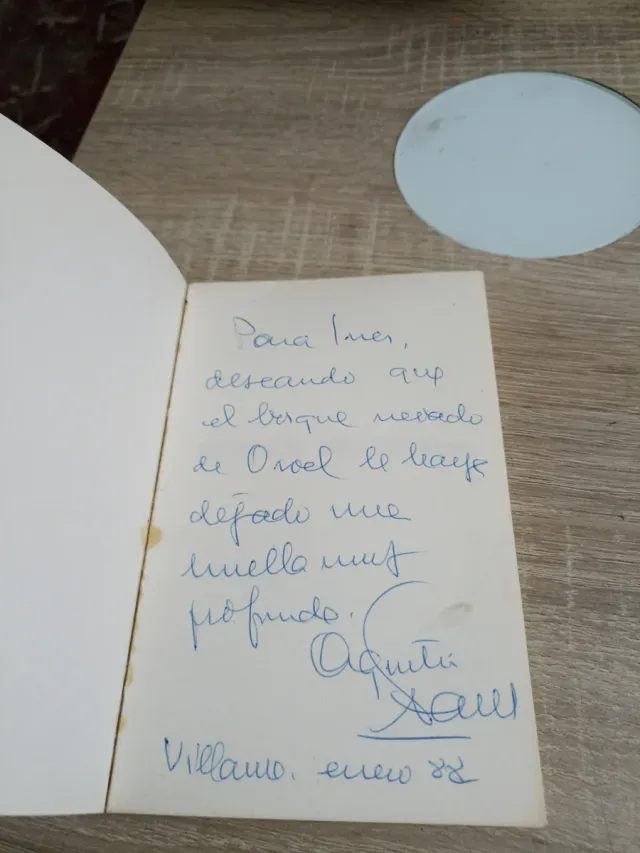 Para Ines,
deseando que
el bosque nevado
de Oroel le haya
dejado una
huella muy
profunda.
Agustín
Villanua. enero 88